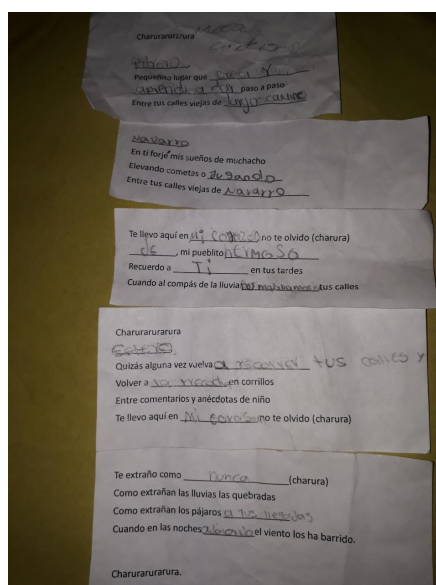 Charurarurarurara
Pequeñito lugar que creci y
aprendi a dar paso a paso
Entre tus calles viejas de
Navarro
En ti forje mis sueños de muchacho
Elevando cometas o Jugando
Entre tus calles viejas de Navarro
Te llevo aquí en Mi Corazon no te olvido (charura)
de, mi pueblito HERMOSO
Recuerdo a Ti en tus tardes
Cuando al compás de la lluvia tus calles
Charurarurarura
Quizás alguna vez vuelva a recorrer tus calles y
Volver a en corrillos
Entre comentarios y anécdotas de niño
Te llevo aquí en Mi corazon no te olvido (charura)
Te extraño como nunca (charura)
Como extrañan las lluvias las quebradas
Como extrañan los pájaros a
Cuando en las noches el viento los ha barrido.
Charurarurarura.